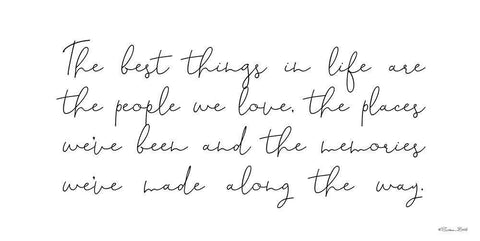 The best things in life are
the people we love, the places
we've been and the memories
we've made along the way.